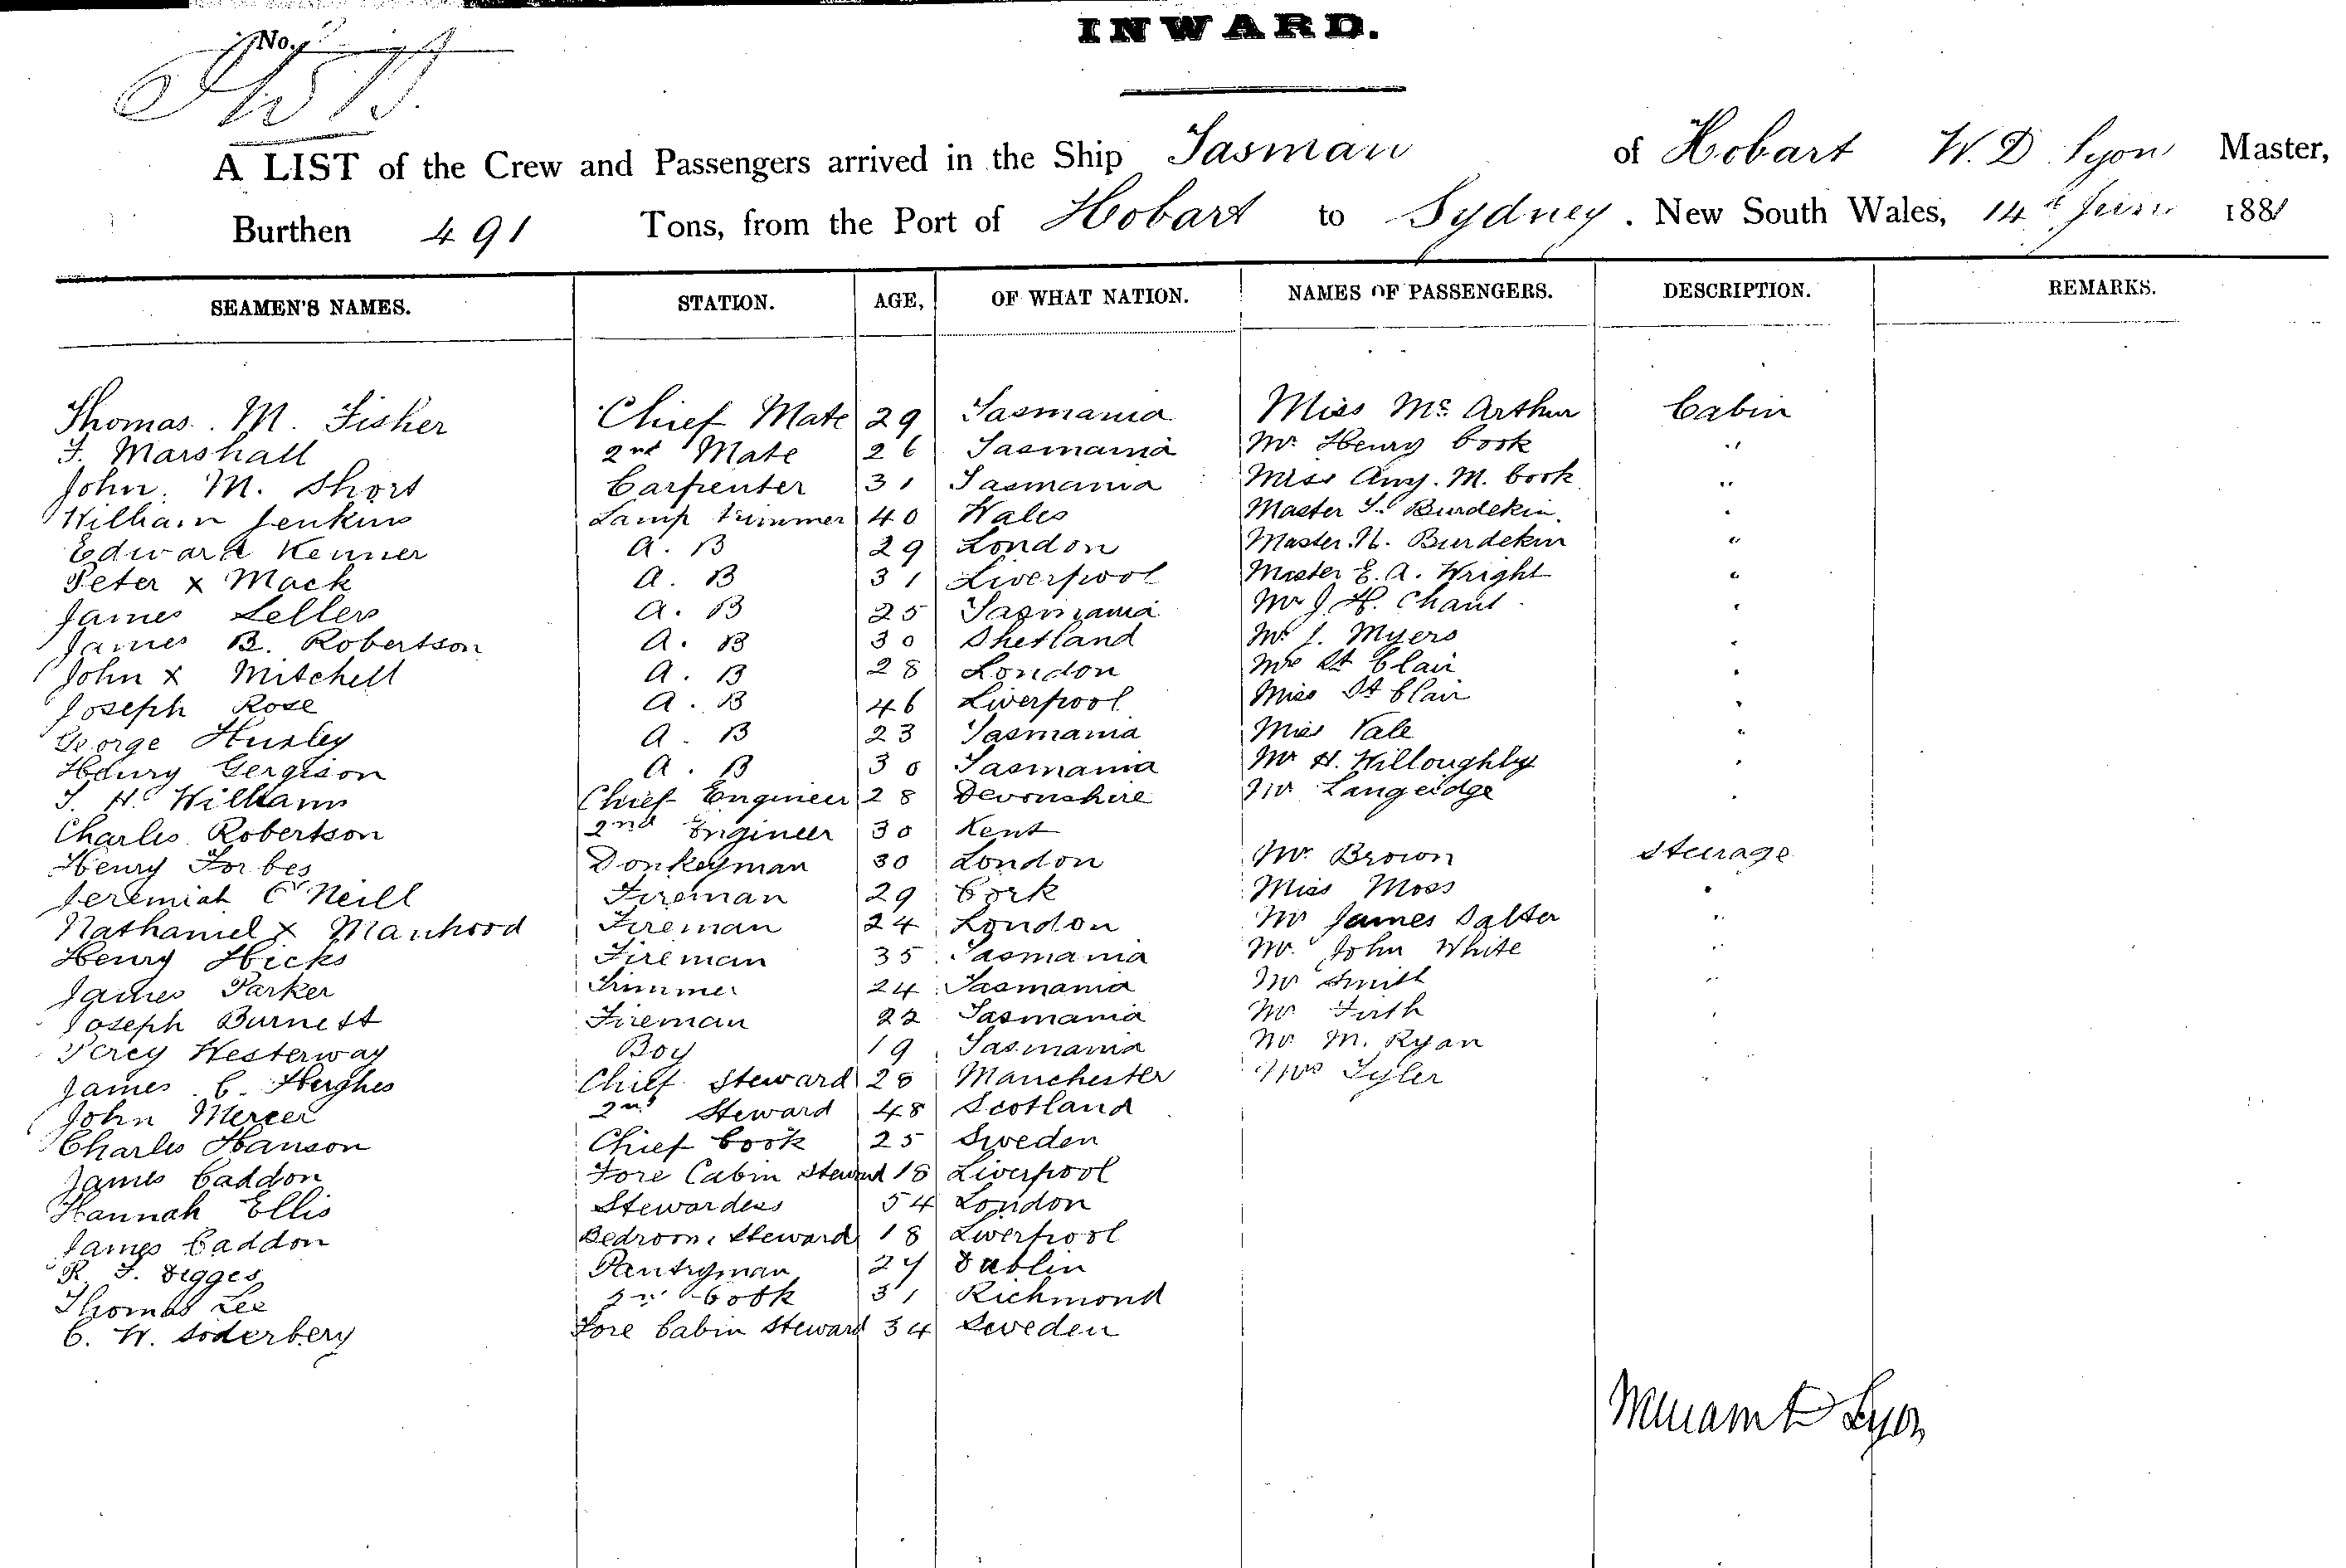 No.
INWARD.
A LIST of the Crew and Passengers arrived in the Ship Tasman of Hobart W. D Lyon Master,
Burthen 491 Tons, from the Port of Hobart to Sydney. New South Wales, 14th June 1881
SEAMEN'S NAMES. STATION. AGE, OF WHAT NATION. NAMES OF PASSENGERS. DESCRIPTION. REMARKS.
Thomas. M. Fisher Chief Mate 29 Tasmania Miss Mc Arthur Cabin
F. Marshall 2nd Mate 26 Tasmania Mr Henry Cook "
John. M. Short Carpenter 31 Tasmania Miss Amy. M. Cook "
William Jenkins Lamp trimmer 40 Wales Master S. Burdekin. "
Edward Kenner A. B 29 London Master. N. Burdekin "
Peter x Mack A. B 31 Liverpool Master E. A. Wright "
James Sellers A. B 25 Tasmania Mr J. H. Chant "
James B. Robertson A. B 30 Shetland Mr J. Myers "
John x Mitchell A. B 28 London Mrs St Clair "
Joseph Rose A. B 46 Liverpool Miss St Clair "
George Huxley A. B 23 Tasmania Miss Vale "
Henry Gergison A. B 30 Tasmania Mr H. Willoughby "
T. H. Williams Chief Engineer 28 Devonshire Mr Langridge "
Charles Robertson 2nd Engineer 30 Kent
Henry Forbes Donkeyman 30 London Mr Brown Steerage
Jeremiah O'Neill Fireman 29 Cork Miss Moss "
Nathaniel x Manhood Fireman 24 London Mr James Salter "
Henry Hicks Fireman 35 Tasmania Mr. John White "
James Parker Trimmer 24 Tasmania Mr Smith "
Joseph Burnett Fireman 22 Tasmania Mr Firth "
Percy Westerway Boy 19 Tasmania Mr M. Ryan "
James C. Hughes Chief Steward 28 Manchester Mrs Tyler "
John Mercer 2nd Steward 48 Scotland
Charles Hanson Chief Cook 25 Sweden
James Caddon Fore Cabin Steward 18 Liverpool
Hannah Ellis Stewardess 54 London
James Caddon Bedroom Steward 18 Liverpool
R. F. Digges Pantryman Dublin
Thomas Lee 2nd Cook 31 Richmond
C. W. Soderbery Fore Cabin Steward 34 Sweden
William D Lyon